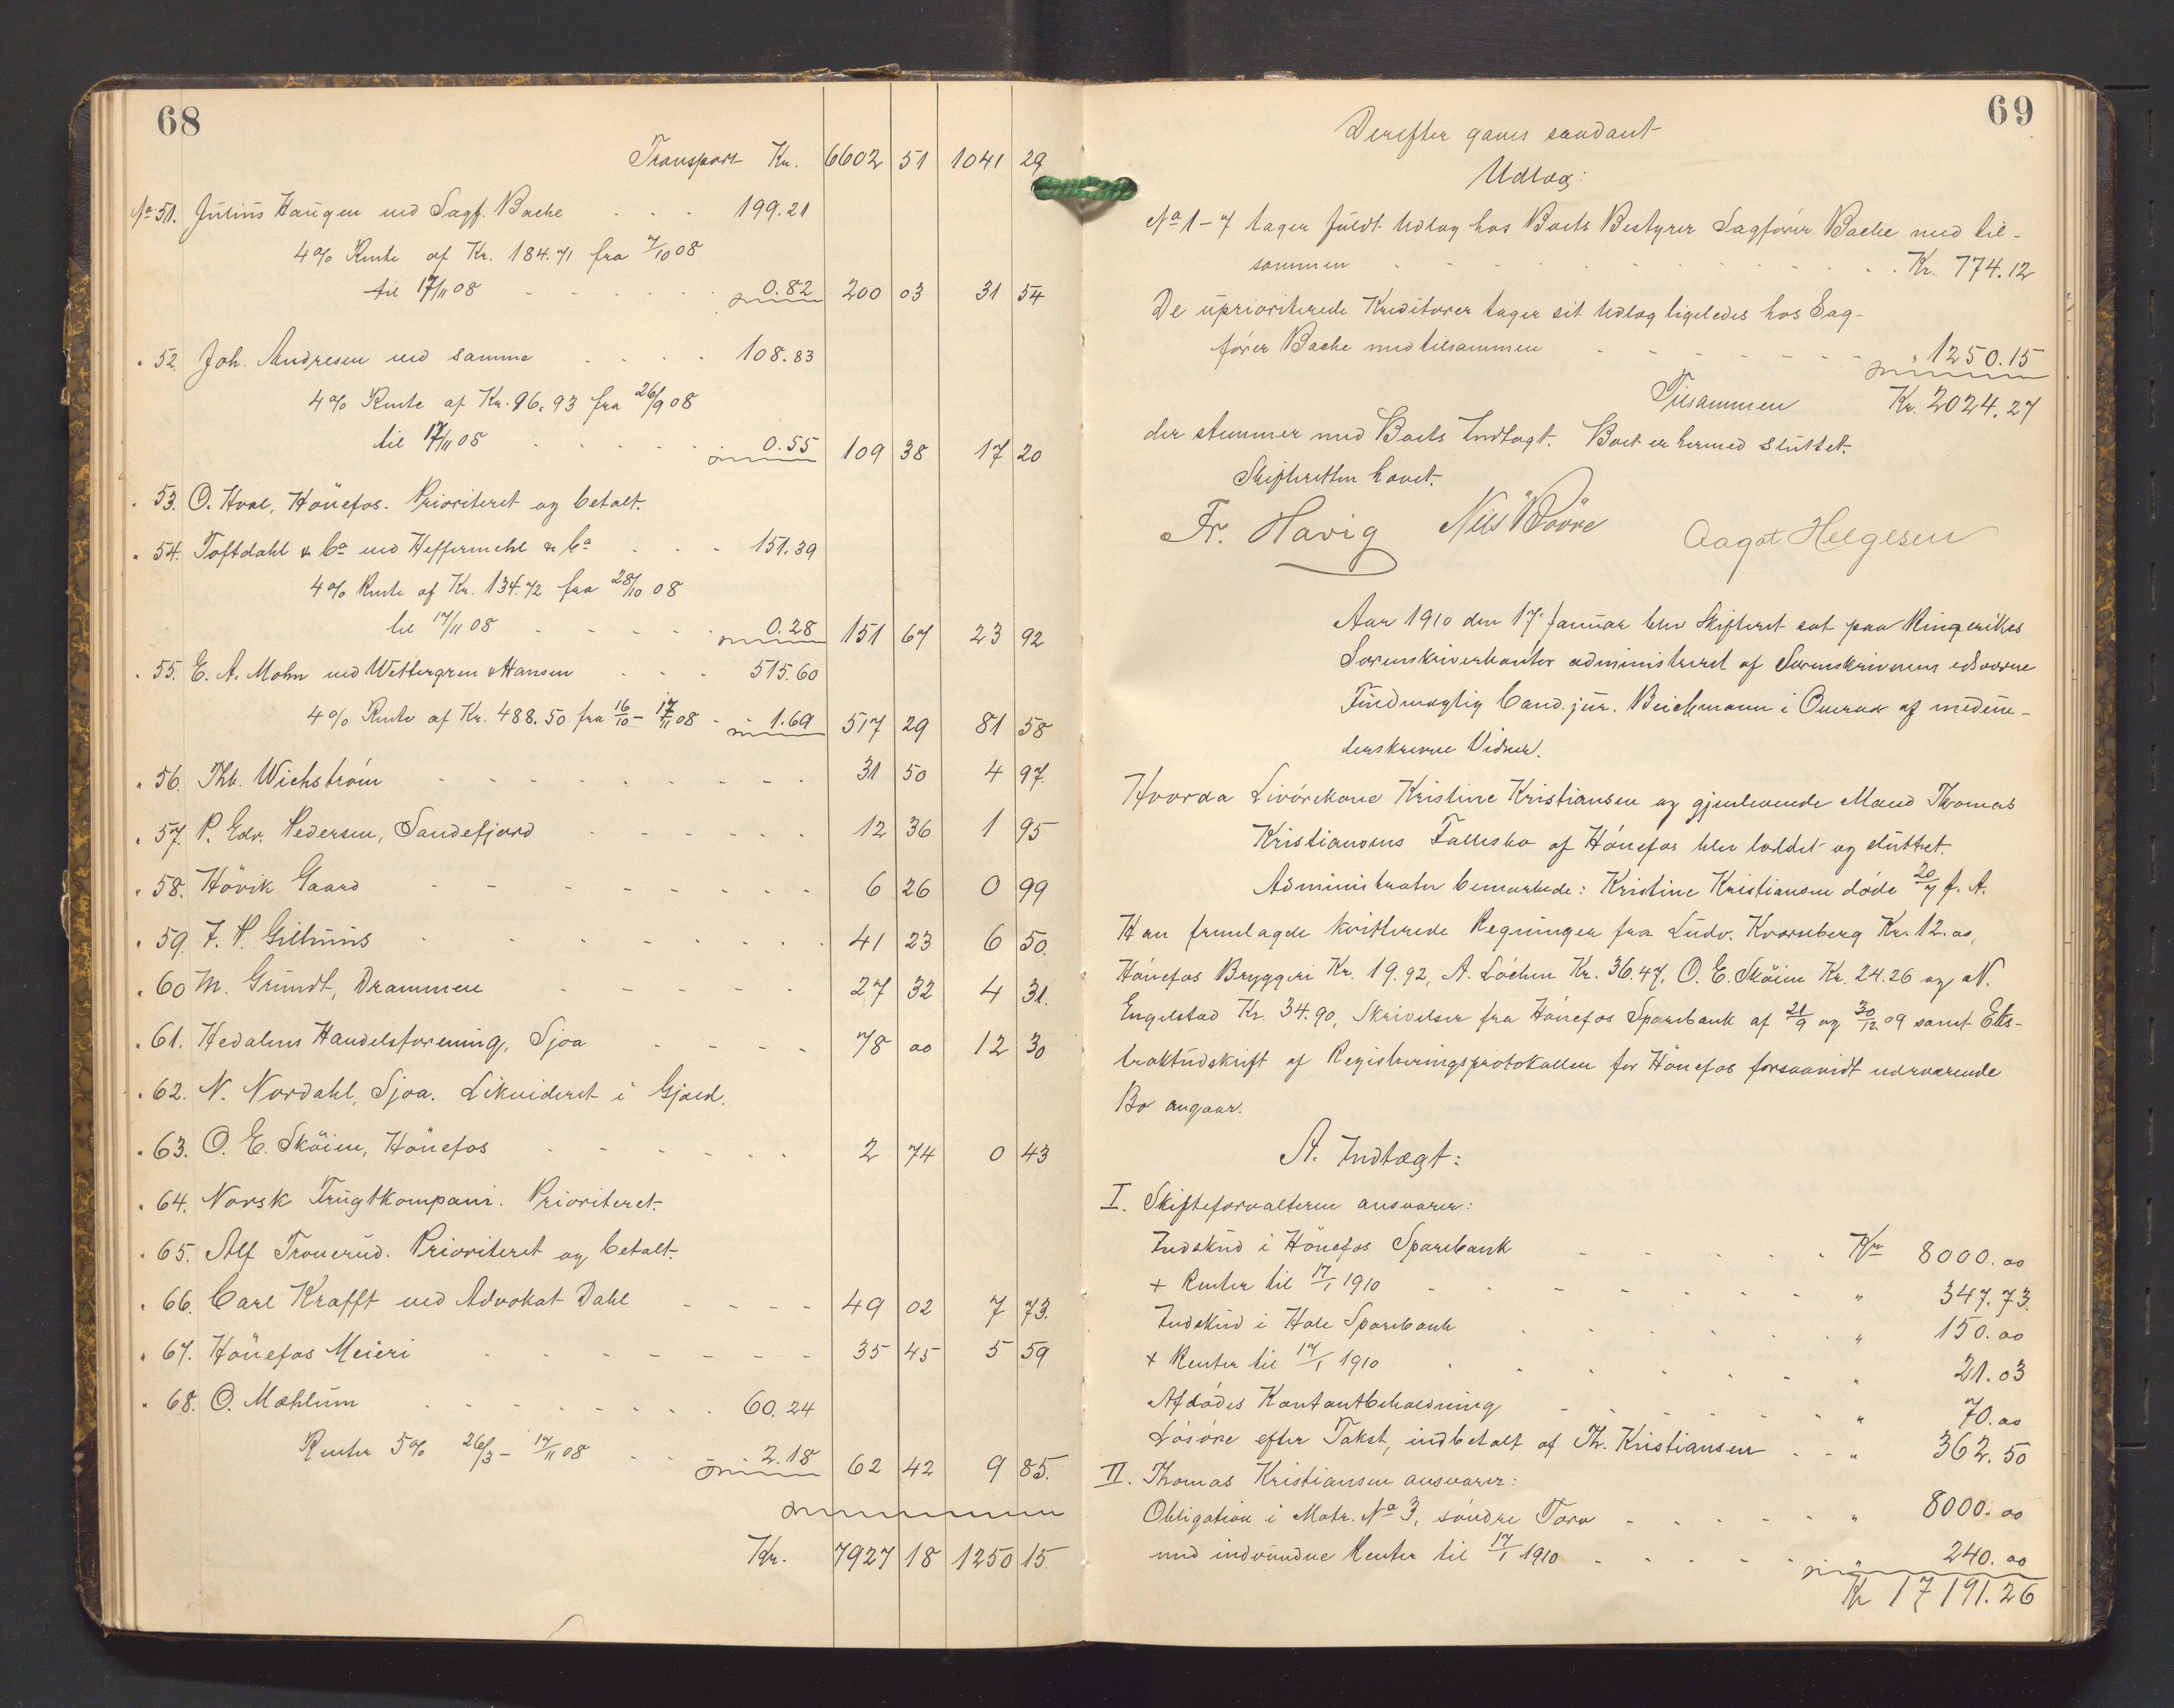 68
Transport Kr. 6602 51 1041 29
No 51. Julius Haugen ved Sagf. Bache . . . 199.21
4% Rente af Kr. 184.71 fra 7/10 08
til 17/11 08 - - - - - 0.82 200 03 31 54
" 52. Joh. Andresen ved samme . . . . 108.83
4% Rente af Kr. 96.93 fra 26/9 08
til 17/11 08 - - - - - 0.55 109 38 17 20
" 53. O. Hval, Hönefos. Prioriteret og betalt.
" 54. Toftdahl & Co ved Heffermehl & Co . . . 151.39
4% Rente af Kr. 134.72 fra 28/10 08
til 17/11 08 - - - - - 0.28 151 67 23 92
" 55. E. A. Mohn ved Wettergren & Hansen . . . 515.60
4% Rente af Kr. 488.50 fra 16/10 - 17/11 08 - - 1.69 517 29 81 58
" 56. Thb. Wichström - - - - - - - - 31 50 4 97.
" 57. P. Edv. Pedersen, Sandefjord - - - - - - 12 36 1 95
" 58. Hövik Gaard - - - - - - - - 6 26 0 99
" 59. J. P. Gillunis - - - - - - - - 41 23 6 50.
" 60 M. Grundt, Drammen - - - - - - 27 32 4 31.
" 61. Hedalens Handelsforening, Sjoa - - - - 78 00 12 30
" 62. N. Nordahl, Sjoa. Likvideret i Gjæld.
" 63. O. E. Sköien, Hönefos - - - - - - 2 74 0 43
" 64. Norsk Frugtkompani. Prioriteret.
" 65. Alf Tronerud. Prioriteret og betalt.
" 66. Carl Krafft ved Advokat Dahl - - - - 49 02 7 73.
" 67. Hönefos Meieri - - - - - - - 35 45 5 59
" 68. O. Mæhlum - - - - - - - - 60.24
Renter 5% 26/3 - 17/11 08 - - 2.18 62 42 9 85.
Kr. 7927 18 1250 15.
69
Derefter gaves saadant
Udlæg:
No 1 - 7 tager fuldt Udlæg hos Boets Bestyrer Sagförer Bache med til-
sammen - - - - - - - - - - Kr. 774.12
De uprioriterede Kreditorer tager sit Udlæg ligeledes hos Sag-
förer Bache med tilsammen - - - - - - - " 1250.15
Tilsammen Kr. 2024.27
der stemmer med Boets Indtægt. Boet er hermed sluttet.
Skifteretten hævet.
Fr. Havig Nils Aagot Helgesen
Aar 1910 den 17. Januar blev Skifteret sat paa Ringerikes
Sorenskriverkontor administreret af Sorenskriverens edsvorne
Fuldmægtig Cand. jur. Beichmann i Overvær af medun-
derskrevne Vidner.
Hvorda Livörekone Kristine Kristiansen og gjenlevende Mand Thomas
Kristiansens Fællesbo af Hönefos blev loddet og sluttet.
Administrator bemærkede: Kristine Kristiansen döde 20/7 f. A.
Han fremlagde kvitterede Regninger fra Ludv. Kvernberg Kr. 12.00,
Hönefos Bryggeri Kr. 19.92, A. Löchen Kr. 36.47, O. E. Sköien Kr. 24.26 og N.
Engelstad Kr. 34.90, Skrivelser fra Hönefos Sparebank af 21/9 og 30/12 09 samt Eks-
traktudskrift af Registreringsprotokollen for Hönefos forsaavidt nærværende
Bo angaar.
A. Indtægt:
I. Skifteforvalteren ansvarer:
Indskud i Hönefos Sparebank - - - - - - Kr 8000.00
+ Renter til 17/1 1910 - - - - - - - - " 347.73.
Indskud i Hole Sparebank - - - - - - - " 150.00
+ Renter til 17/1 1910 - - - - - - - - " 21.03
Afdödes Kontantbeholdning - - - - - - - " 70.00
Lösöre efter Takst, indbetalt af Th. Kristiansen - - " 362.50
II. Thomas Kristiansen ansvarer:
Obligation i Matr. No 3, söndre Torv - - - - - " 8000.00
med indvundne Renter til 17/1 1910 - - - - - " 240.00
Kr 17191.26